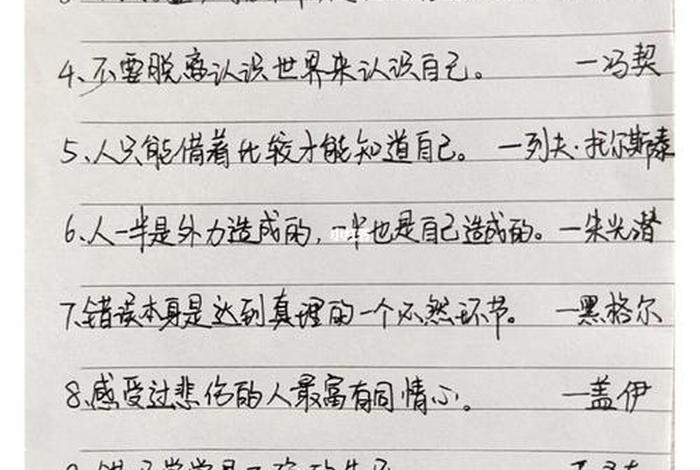 4、不要脱离认识世界来认识自己。 一冯契
5、人只能借着比较才能知道自己。 一列夫·托尔斯泰
6、人一半是外力造成的,一半也是自己造成的。一朱光潜
7、错误本身是达到真理的一个必然环节。 一黑格尔
8、感受过悲伤的人最富有同情心。 一盖伊